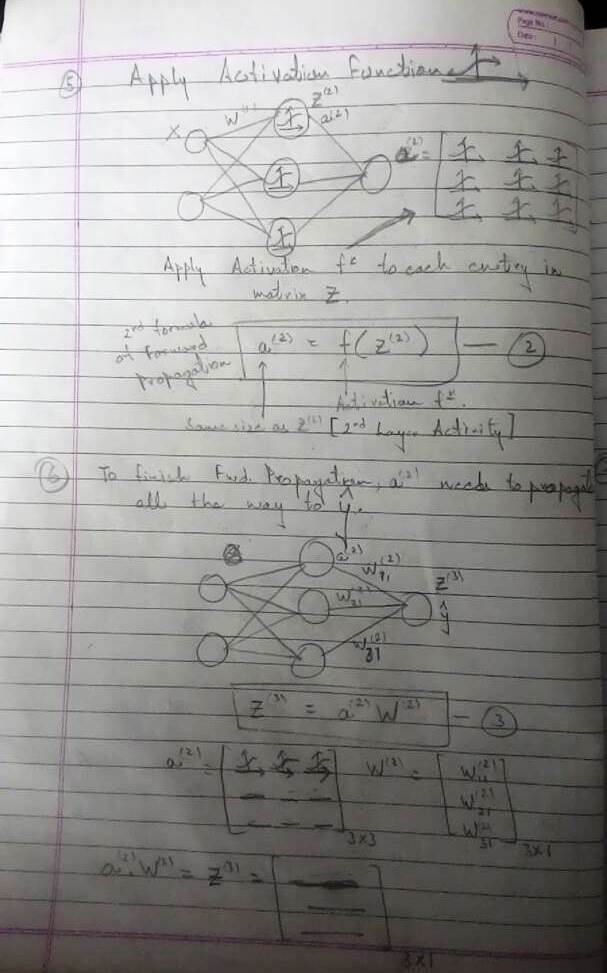 Page No.
Date:
5 Apply Activation Function
X W⁽¹⁾ Z⁽²⁾
a⁽²⁾
a⁽²⁾ =
Apply Activation fⁿ to each entry in
matrix Z.
2nd formula
of forward
propagation
a⁽²⁾ = f(Z⁽²⁾) — 2
Activation fⁿ.
Same size as Z⁽²⁾ [2nd Layer Activity]
6 To finish Fwd. Propagation, a⁽²⁾ needs to propagate
all the way to ŷ.
a⁽²⁾
W₁₁⁽²⁾
W₂₁⁽²⁾
W₃₁⁽²⁾
Z⁽³⁾
ŷ
Z⁽³⁾ = a⁽²⁾ W⁽²⁾ — 3
a⁽²⁾ = [ ] 3×3 W⁽²⁾ = [ W₁₁⁽²⁾
W₂₁⁽²⁾
W₃₁⁽²⁾ ] 3×1
a⁽²⁾.W⁽²⁾ = Z⁽³⁾ = [ ] 3×1